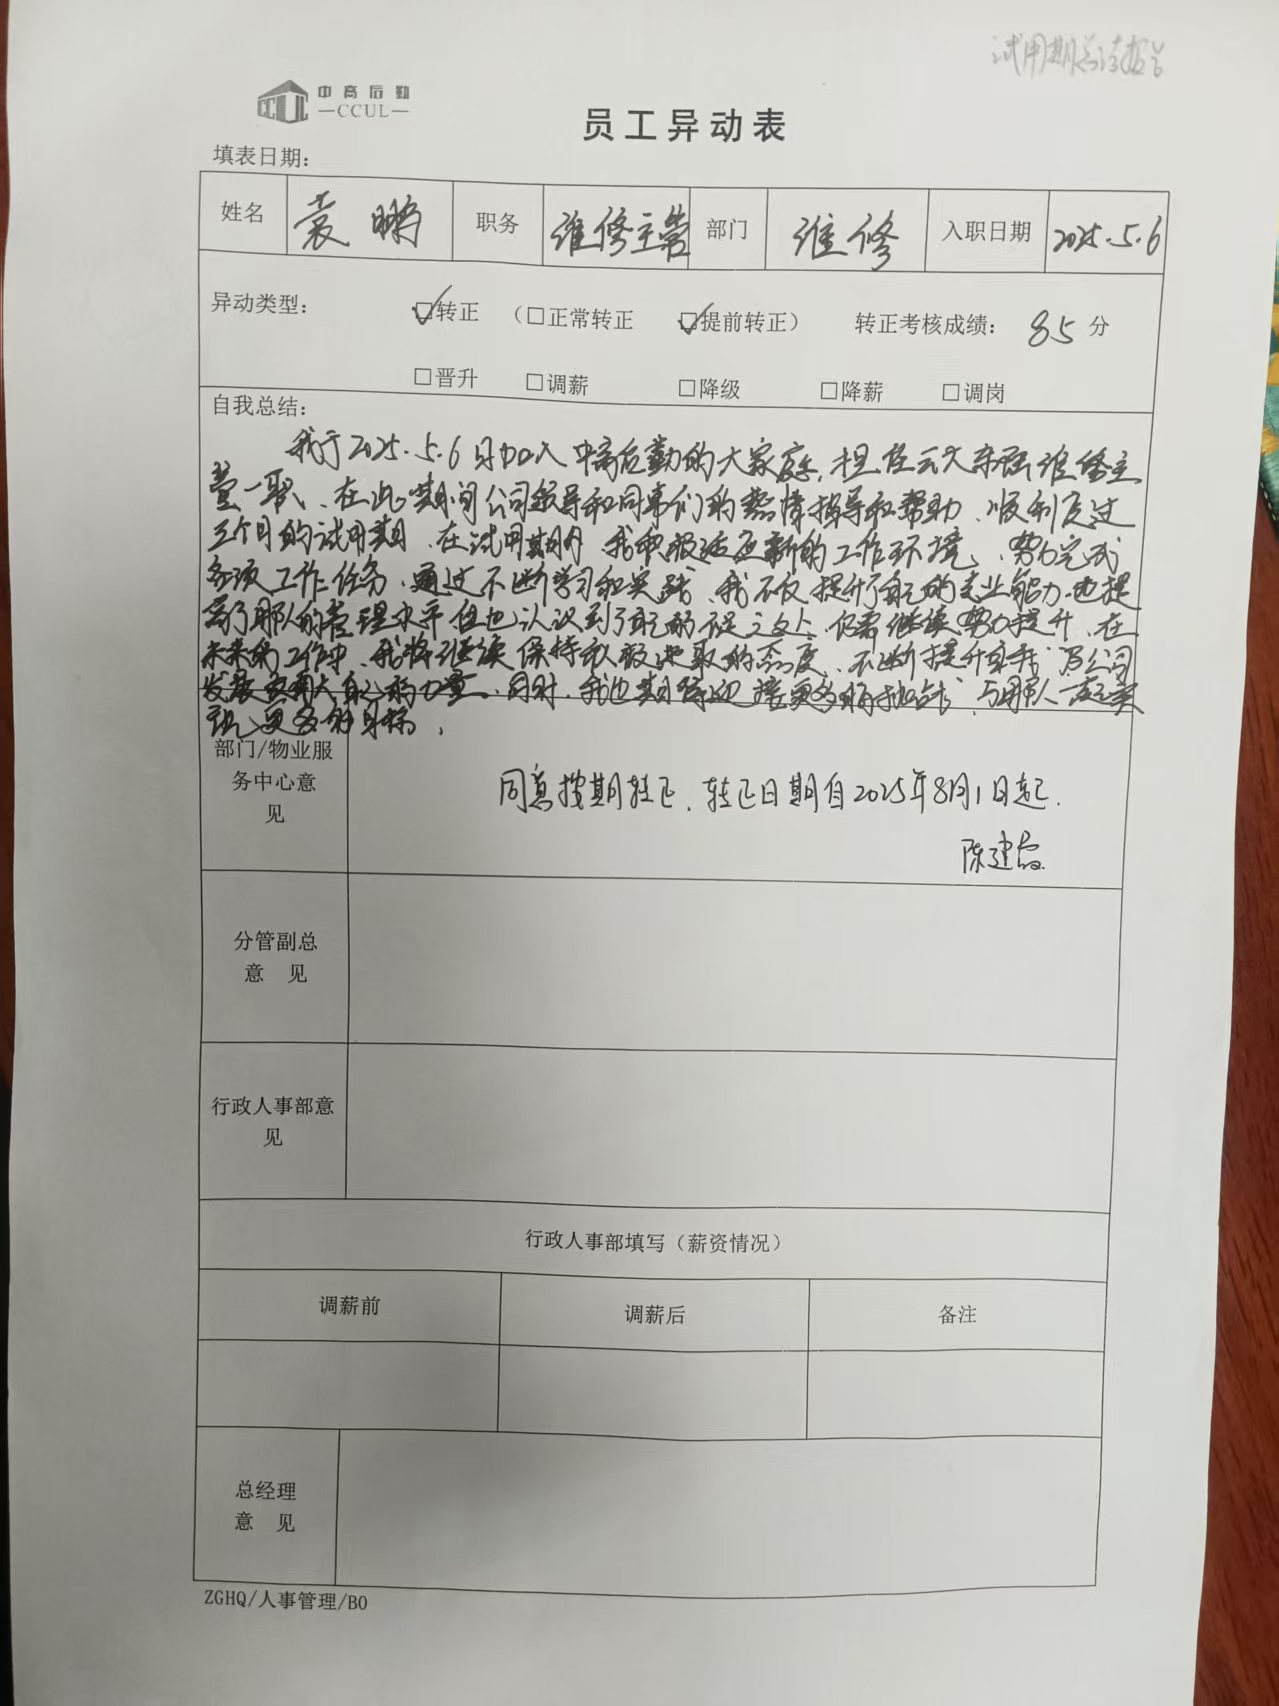 试用期总结报告
中高后勤
CCUL
—CCUL—
员工异动表
填表日期：
姓名 袁鹏 职务 维修主管 部门 维修 入职日期 2025.5.6
异动类型： ☑转正 （□正常转正 ☑提前转正） 转正考核成绩： 85 分
□晋升 □调薪 □降级 □降薪 □调岗
自我总结：
我于2025.5.6日加入中高后勤的大家庭，担任云大东陆维修主
管一职、在此期间公司领导和同事们的热情指导和帮助、顺利度过
三个月的试用期、在试用期内、我积极适应新的工作环境、努力完成
各项工作任务、通过不断学习和实践、我不仅提升了自己的专业能力、也提
高了团队的管理水平但也认识到了自己的误之处、仍需继续努力提升、在
未来的工作中、我将继续保持积极进取的态度、不断提升自我 为公司
发展贡献大自己的力量、同时、我也期待迎接更多的挑战、与团队一起实
现更多的目标，
部门/物业服
务中心意
见
同意按期转正、转正日期自2025年8月1日起.
陈建
分管副总
意 见
行政人事部意
见
行政人事部填写（薪资情况）
调薪前 调薪后 备注
总经理
意 见
ZGHQ/人事管理/B0